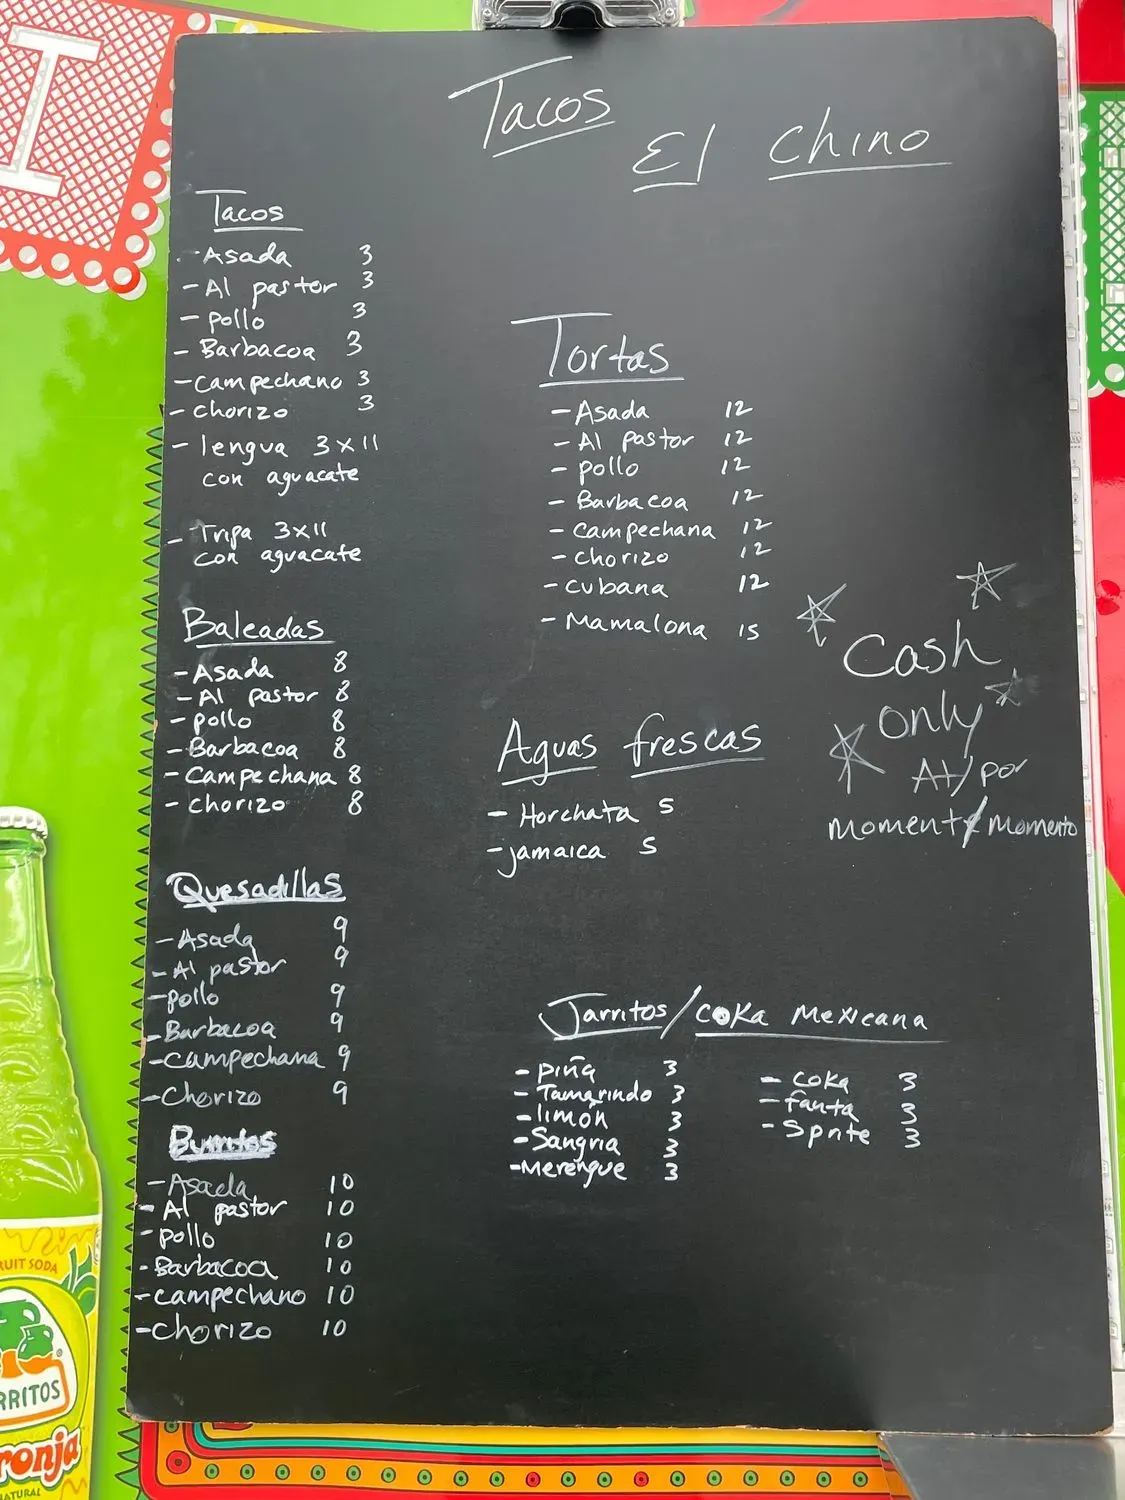 Tacos
El Chino
Tacos
- Asada 3
- Al pastor 3
- pollo 3
- Barbacoa 3
- campechano 3
- chorizo 3
- lengua 3x11
con aguacate
- Tripa 3x11
con aguacate
Baleadas
- Asada 8
- Al pastor 8
- pollo 8
- Barbacoa 8
- Campechana 8
- chorizo 8
Quesadillas
- Asada 9
- Al pastor 9
- pollo 9
- Barbacoa 9
- Campechana 9
- Chorizo 9
Burritos
- Asada 10
- Al pastor 10
- pollo 10
- Barbacoa 10
- campechano 10
- chorizo 10
Tortas
- Asada 12
- Al pastor 12
- pollo 12
- Barbacoa 12
- campechana 12
- chorizo 12
- cubana 12
- Mamalona 15
Aguas frescas
- Horchata 5
- jamaica 5
Cash
only
At/por
moment/momento
Jarritos/coka mexicana
- piña 3
- Tamarindo 3
- limón 3
- Sangria 3
- Merengue 3
- coka 3
- fanta 3
- Sprite 3
I
RUIT SODA
RRITOS
ronja
NATURAL